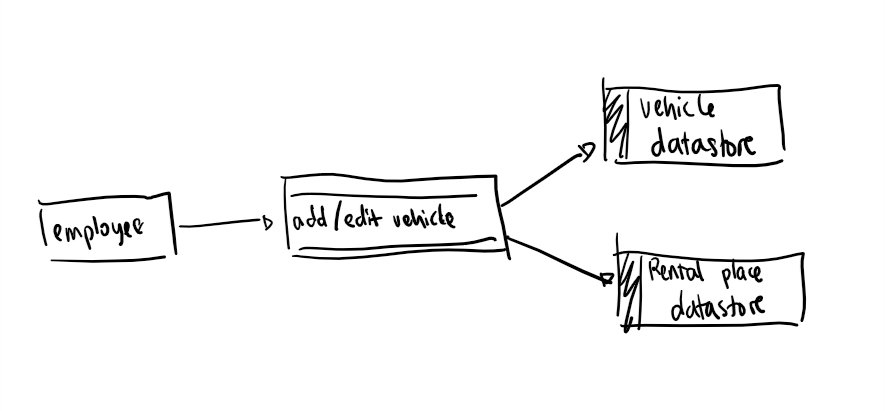 employee
add/edit vehicle
vehicle
datastore
Rental place
datastore